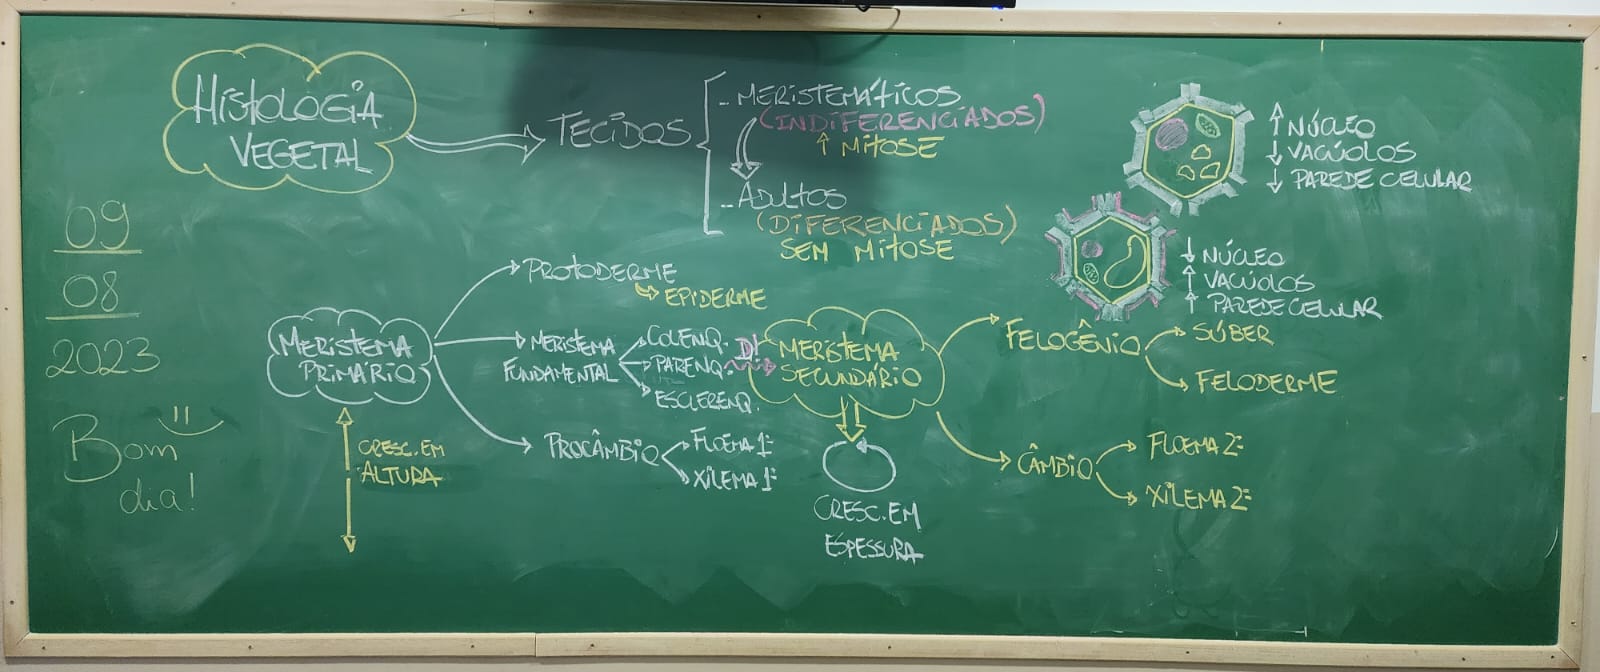 HISTOLOGIA
VEGETAL
TECIDOS
- MERISTEMÁTICOS
(INDIFERENCIADOS)
↑ MITOSE
- ADULTOS
(DIFERENCIADOS)
SEM MITOSE
↑ NÚCLEO
↓ VACÚOLOS
↓ PAREDE CELULAR
↓ NÚCLEO
↑ VACÚOLOS
↑ PAREDE CELULAR
09
08
2023
Bom
dia!
MERISTEMA
PRIMÁRIO
CRESC. EM
ALTURA
PROTODERME
EPIDERME
MERISTEMA
FUNDAMENTAL
COLENQ.
PARENQ.
ESCLERENQ.
PROCÂMBIO
FLOEMA 1º
XILEMA 1º
D!
MERISTEMA
SECUNDÁRIO
CRESC. EM
ESPESSURA
FELOGÊNIO
SÚBER
FELODERME
CÂMBIO
FLOEMA 2º
XILEMA 2º